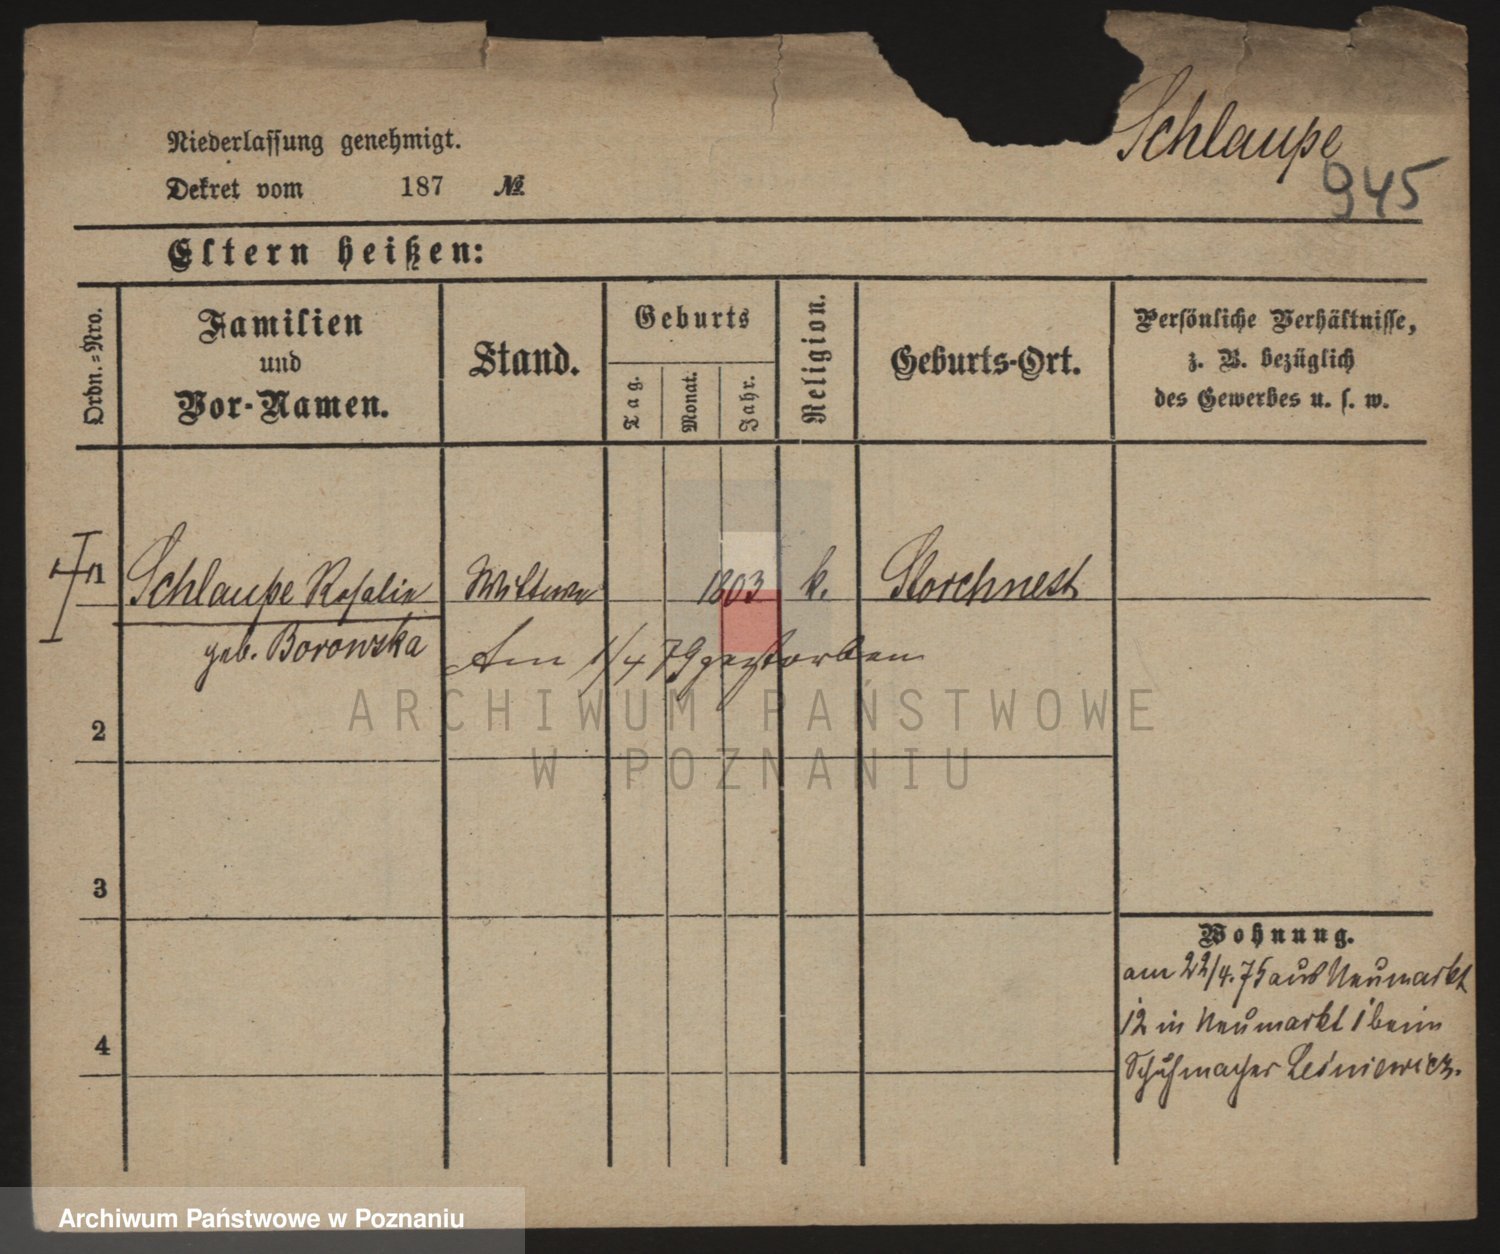 Schlaupe
945
Niederlassung genehmigt.
Dekret vom 187 №
Eltern heißen:
Ordn.-Nro.
Familien und Vor-Namen.
Stand.
Geburts
Tag.
Monat.
Jahr.
Religion.
Geburts-Ort.
Persönliche Verhältnisse,
z. B. bezüglich
des Gewerbes u. s. w.
1 Schlaupe Rosalie Wittwe 1803 k. Storchnest
geb. Borowska
Am 1/4 79 gestorben
2
3
4
Wohnung.
am 22/4. 75 aus Neumarkt
12 in Neumarkt 1 beim
Schuhmacher Leśniewicz.
ARCHIWUM PAŃSTWOWE
W POZNANIU
Archiwum Państwowe w Poznaniu